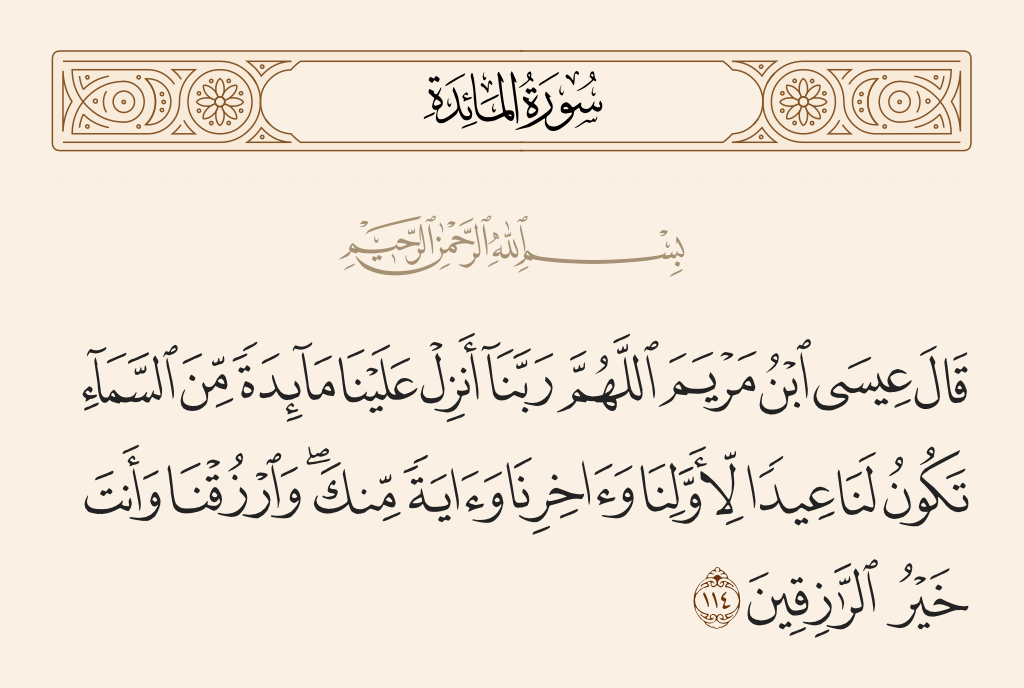 سُورَةُ المَائِدَةِ
بِسْمِ ٱللَّهِ ٱلرَّحْمَٰنِ ٱلرَّحِيمِ
قَالَ عِيسَى ٱبْنُ مَرْيَمَ ٱللَّهُمَّ رَبَّنَآ أَنزِلْ عَلَيْنَا مَآئِدَةً مِّنَ ٱلسَّمَآءِ
تَكُونُ لَنَا عِيدًا لِّأَوَّلِنَا وَءَاخِرِنَا وَءَايَةً مِّنكَ ۖ وَٱرْزُقْنَا وَأَنتَ
خَيْرُ ٱلرَّٰزِقِينَ ١١٤